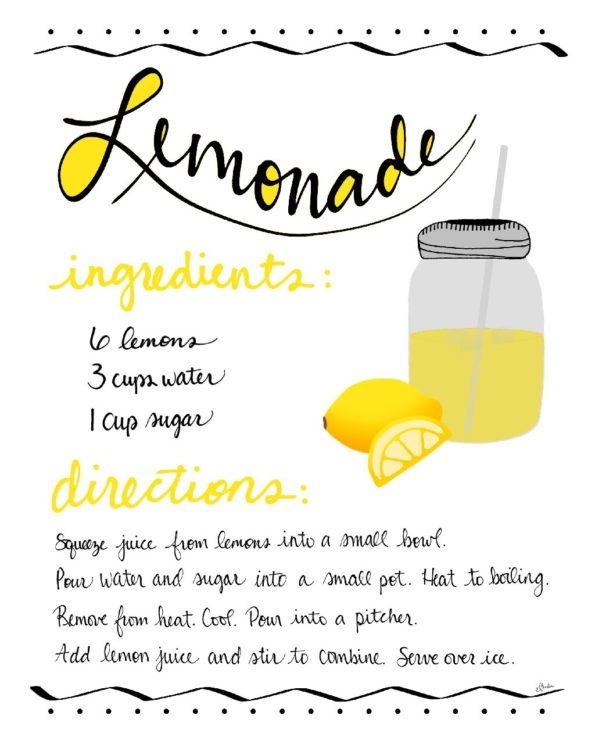 Lemonade
ingredients:
6 lemons
3 cups water
1 cup sugar
directions:
Squeeze juice from lemons into a small bowl.
Pour water and sugar into a small pot. Heat to boiling.
Remove from heat. Cool. Pour into a pitcher.
Add lemon juice and stir to combine. Serve over ice.